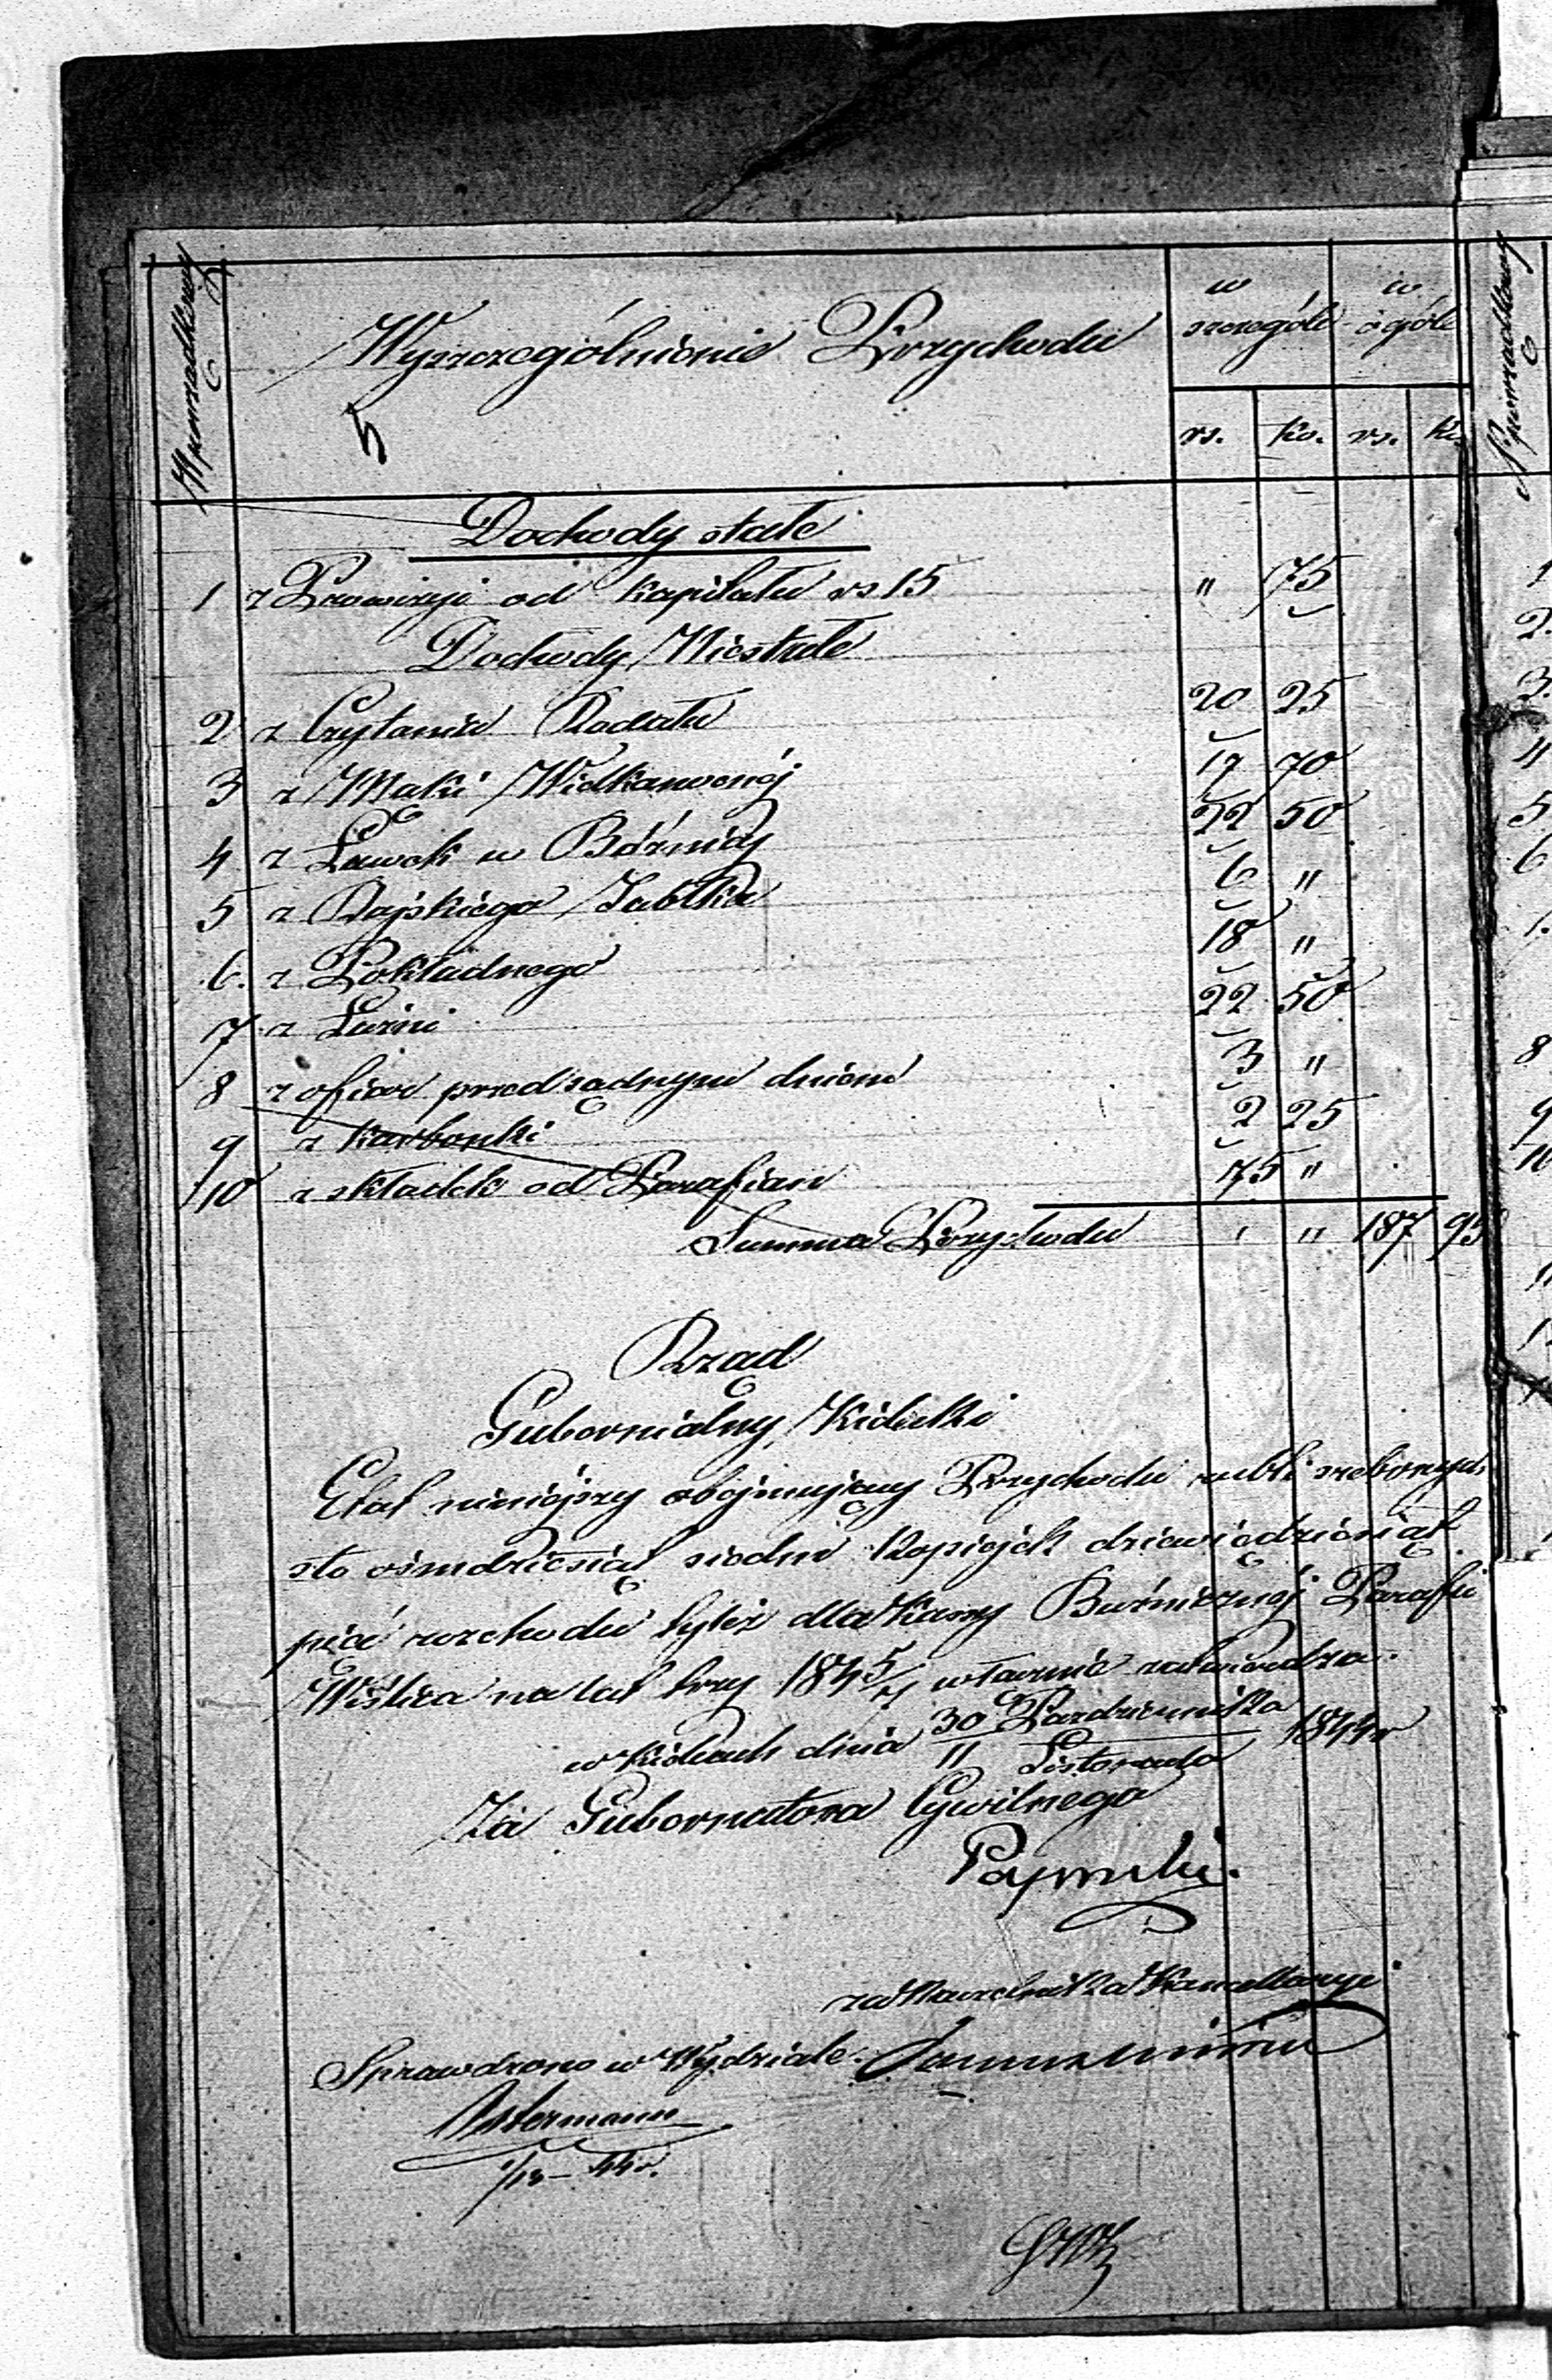 N porządkowy
Wyszczególnienie Przychodu
w szczególe
w ogóle
rs. ko. rs. ko.
5
Dochody stałe
1 z Prowizyi od kapitału rs 15 " 75
Dochody Niestałe
2 z Czytania Rodału 20 25
3 z Mąki Wielkanocnéj 17 70
4 z Ławek w Bóżnicy 22 50
5 z Rajskiego Jabłka 6 "
6. z Pokładnego 18 "
7 z Łaźni 22 50
8 z ofiar przed sądnym dniem 3 "
9 z karbonki 2 25
10 z składek od Parafian 75 "
Summa Przychodu " " 187 95
Rząd
Gubernialny Kielecki
Etat niniejszy obejmujący Przychodu rubli srebrnych
sto ośmdziesiąt siedm kopiejek dziewiędziesiąt
pięć rozchodu tyleż dla Kassy Bużnicznéj Parafii
Wiślica na lat trzy 1845/7 w Radzie zatwierdza.
w Kielcach dnia 30 Października / 11 Listopada 1844 r
Za Gubernatora Cywilnego
za Naczelnika Kancellaryi
Sprawdzono w Wydziale.
Ostermann